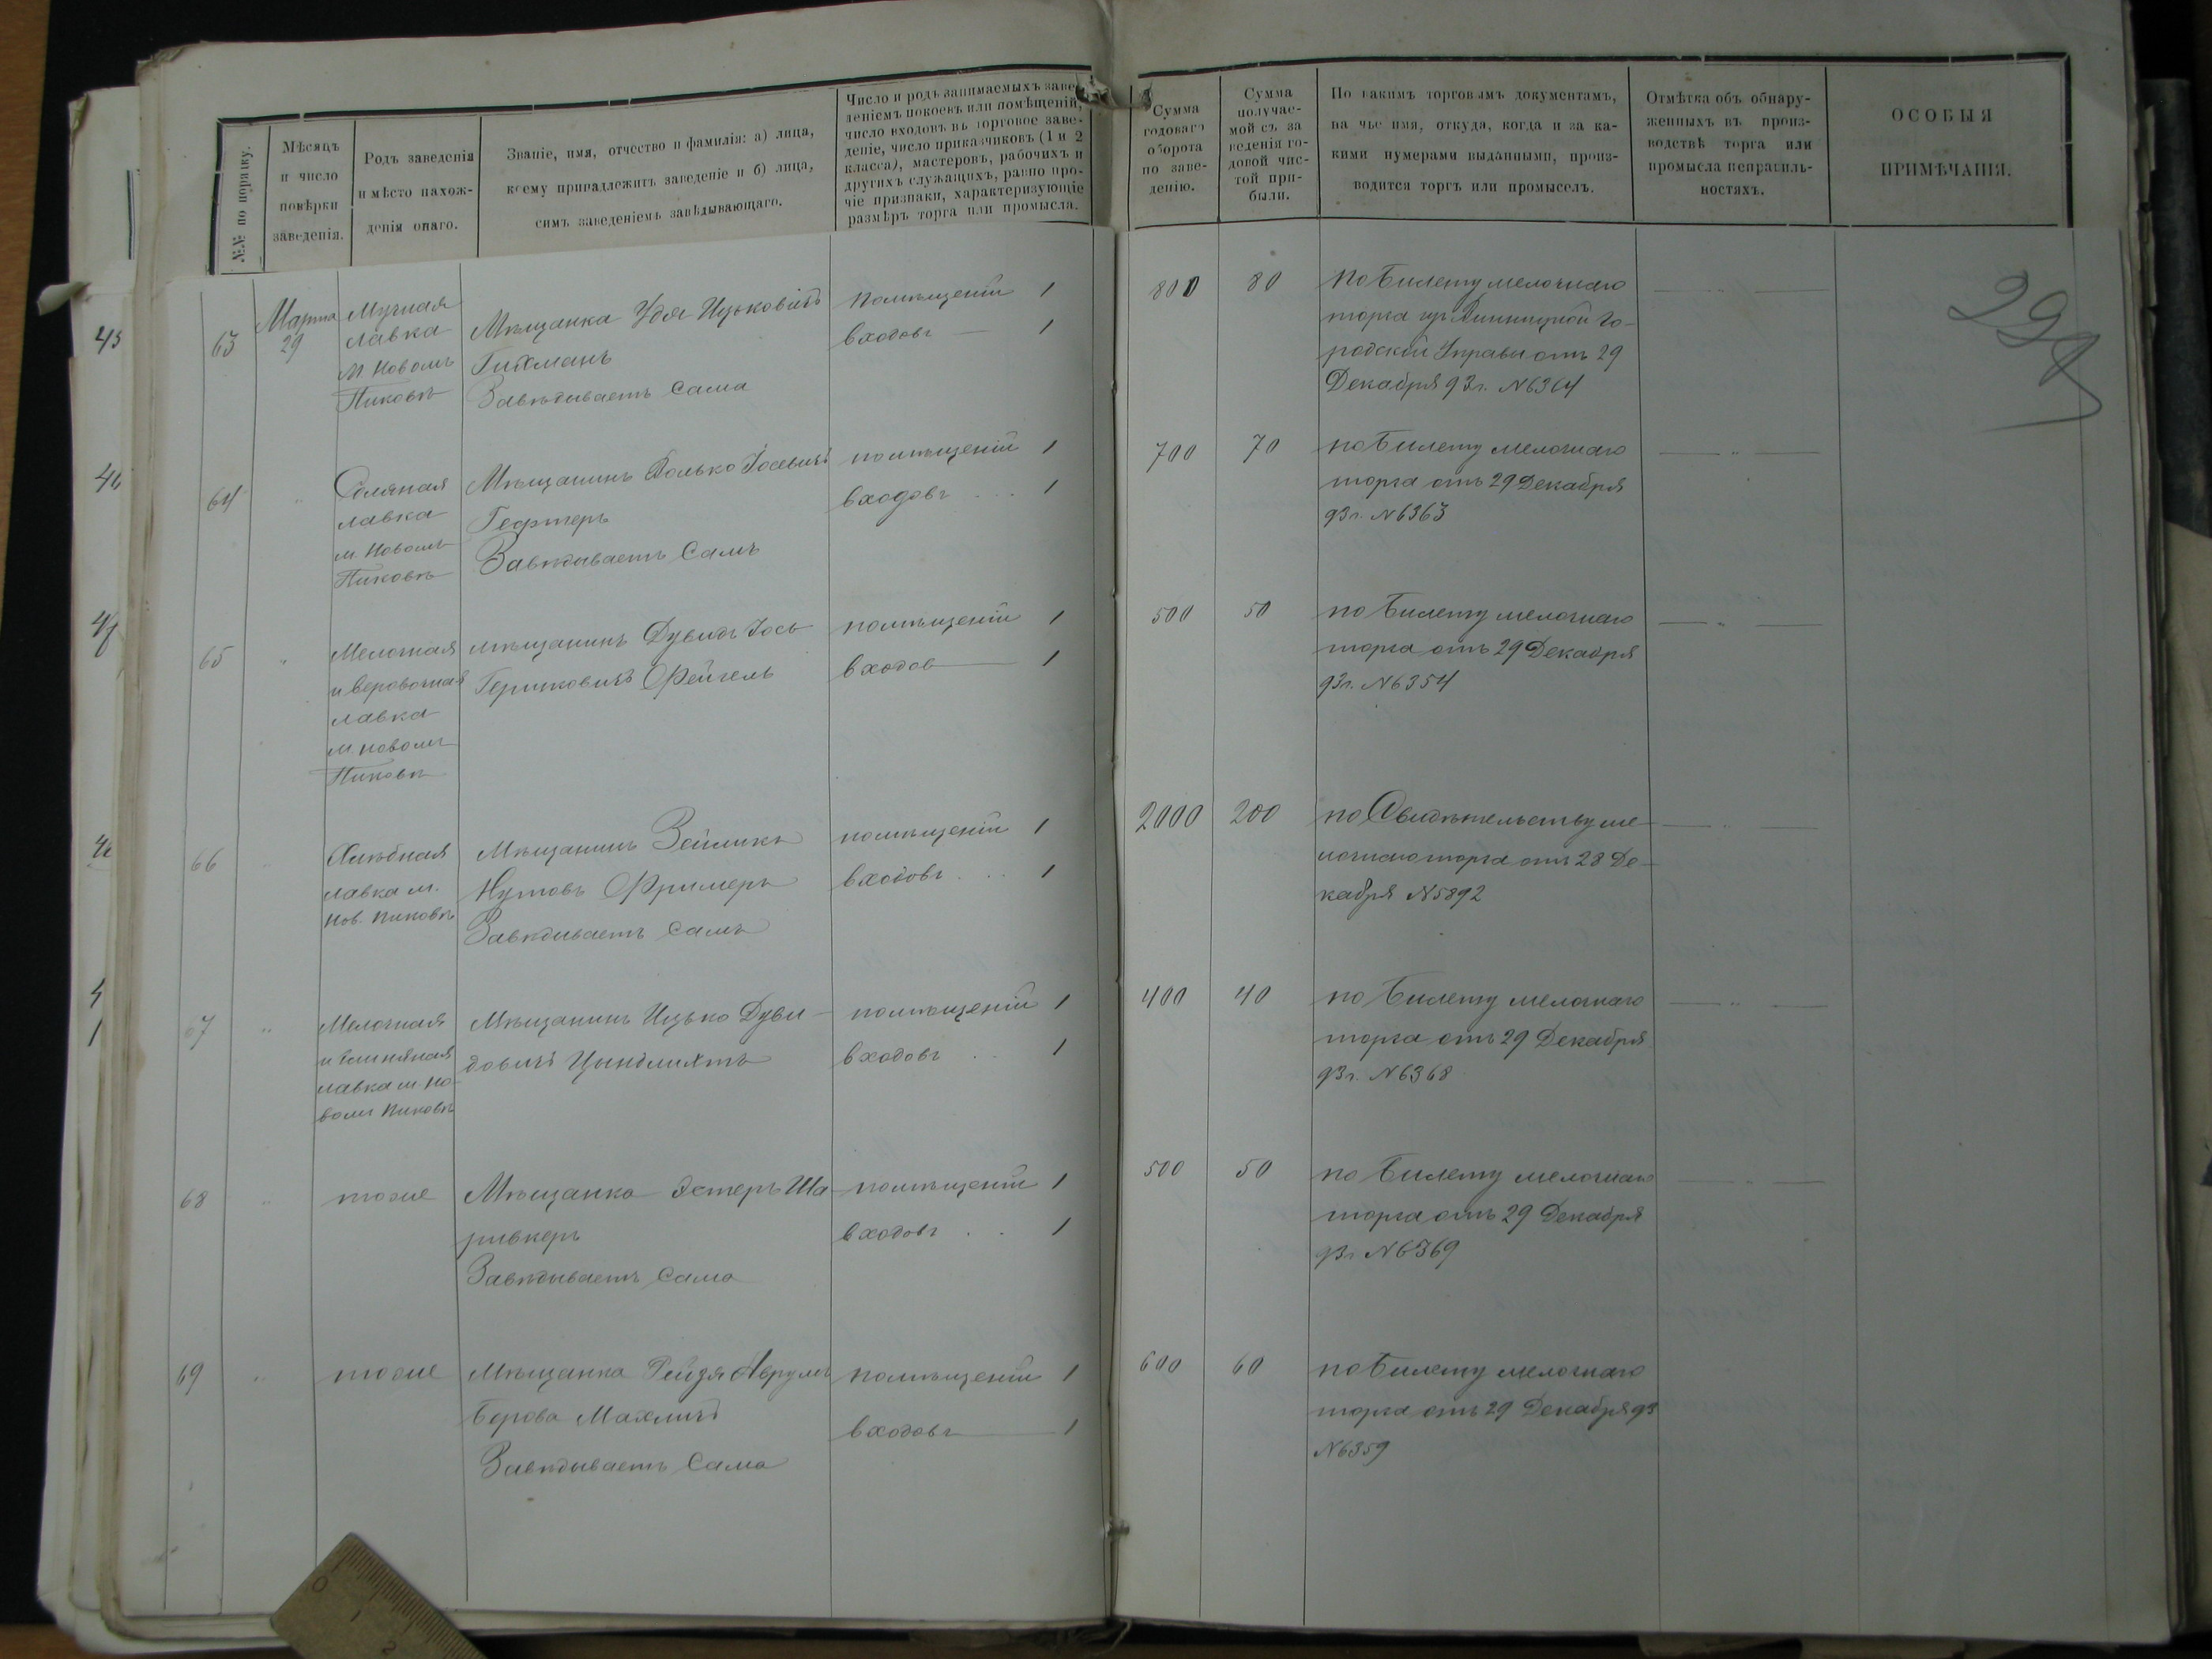 №№ по порядку.
Мѣсяцъ
и число
повѣрки
заведенія.
Родъ заведенія
и мѣсто нахож-
денія онаго.
Званіе, имя, отчество и фамилія: а) лица,
коему принадлежитъ заведеніе и б) лица,
симъ заведеніемъ завѣдывающаго.
Число и родъ занимаемыхъ заве-
деніемъ покоевъ или помѣщеній,
число входовъ въ торговое заве-
деніе, число приказчиковъ (1 и 2
класса), мастеровъ, рабочихъ и
другихъ служащихъ, равно про-
чіе признаки, характеризующіе
размѣръ торга или промысла.
Сумма
годоваго
оборота
по заве-
денію.
Сумма
получае-
мой съ за
веденія го-
довой чис-
той при-
были.
По какимъ торговымъ документамъ,
на чье имя, откуда, когда и за ка-
кими нумерами выданными, произ-
водится торгъ или промыселъ.
Отмѣтка объ обнару-
женныхъ въ произ-
водствѣ торга или
промысла неправиль-
ностяхъ.
ОСОБЫЯ
ПРИМѢЧАНІЯ.
63
Марта
29
Мучная
лавка
м. Новомъ
Пиковѣ
Мѣщанка Удя Ицьковичъ
Гихманъ
Завѣдываетъ сама
помѣщеній 1
входовъ — 1
800
80
По билету мелочнаго
торга изъ Винницкой Го-
родской Управы отъ 29
Декабря 93 г. N 6364
64
"
Соляная
лавка
м. Новомъ
Пиковѣ
Мѣщанинъ Волько Іосевичъ
Гефтеръ
Завѣдываетъ Самъ
помѣщеній 1
входовъ . . . 1
700
70
по билету мелочнаго
торга отъ 29 Декабря
93 г. N 6363
65
"
Мелочная
и веровочная
лавка
м. новомъ
Пиковѣ
мѣщанинъ Дувидъ Іось
Гершковичъ Фейгель
помѣщеній 1
входов — 1
500
50
по билету мелочнаго
торга отъ 29 Декабря
93 г. N 6354
66
"
Хлѣбная
лавка м.
Нов. Пиковѣ
Мѣщанинъ Зейликъ
Нутовъ Фримеръ
Завѣдываетъ самъ
помѣщеній 1
входовъ . . . 1
2000
200
по Свидѣтельству ме-
лочнаго торга отъ 28 Де-
кабря N 5892
67
"
Мелочная
и глиняная
лавка м. Но-
вомъ Пиковѣ
Мѣщанинъ Ицько Дуви-
довичъ Цындлихтъ
помѣщеній 1
входовъ . . 1
400
40
по билету мелочнаго
торга отъ 29 Декабря
93 г. N 6368
68
"
тоже
Мѣщанка Эстеръ Ша-
ривкеръ
Завѣдываетъ сама
помѣщеній 1
входовъ . . 1
500
50
по билету мелочнаго
торга отъ 29 Декабря
93 г N 6369
69
"
тоже
Мѣщанка Рейзя Аврумъ
Берова Махличъ
Завѣдываетъ Сама
помѣщеній 1
входовъ — 1
600
60
по билету мелочнаго
торга отъ 29 Декабря 93
N 6359